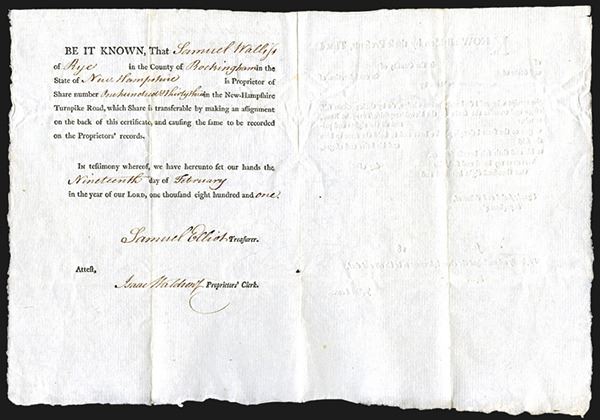 BE IT KNOWN, That Samuel Walliss
of Rye in the County of Rockingham in the
State of New Hampshire is Proprietor of
Share number One hundred & thirty three in the New-Hampshire
Turnpike Road, which Share is transferable by making an assignment
on the back of this certificate, and causing the same to be recorded
on the Proprietors' records.
In testimony whereof, we have hereunto set our hands the
Nineteenth day of February
in the year of our LORD, one thousand eight hundred and one
Samuel Elliot Treasurer.
Attest,
Isaac Waldron Proprietors' Clerk.